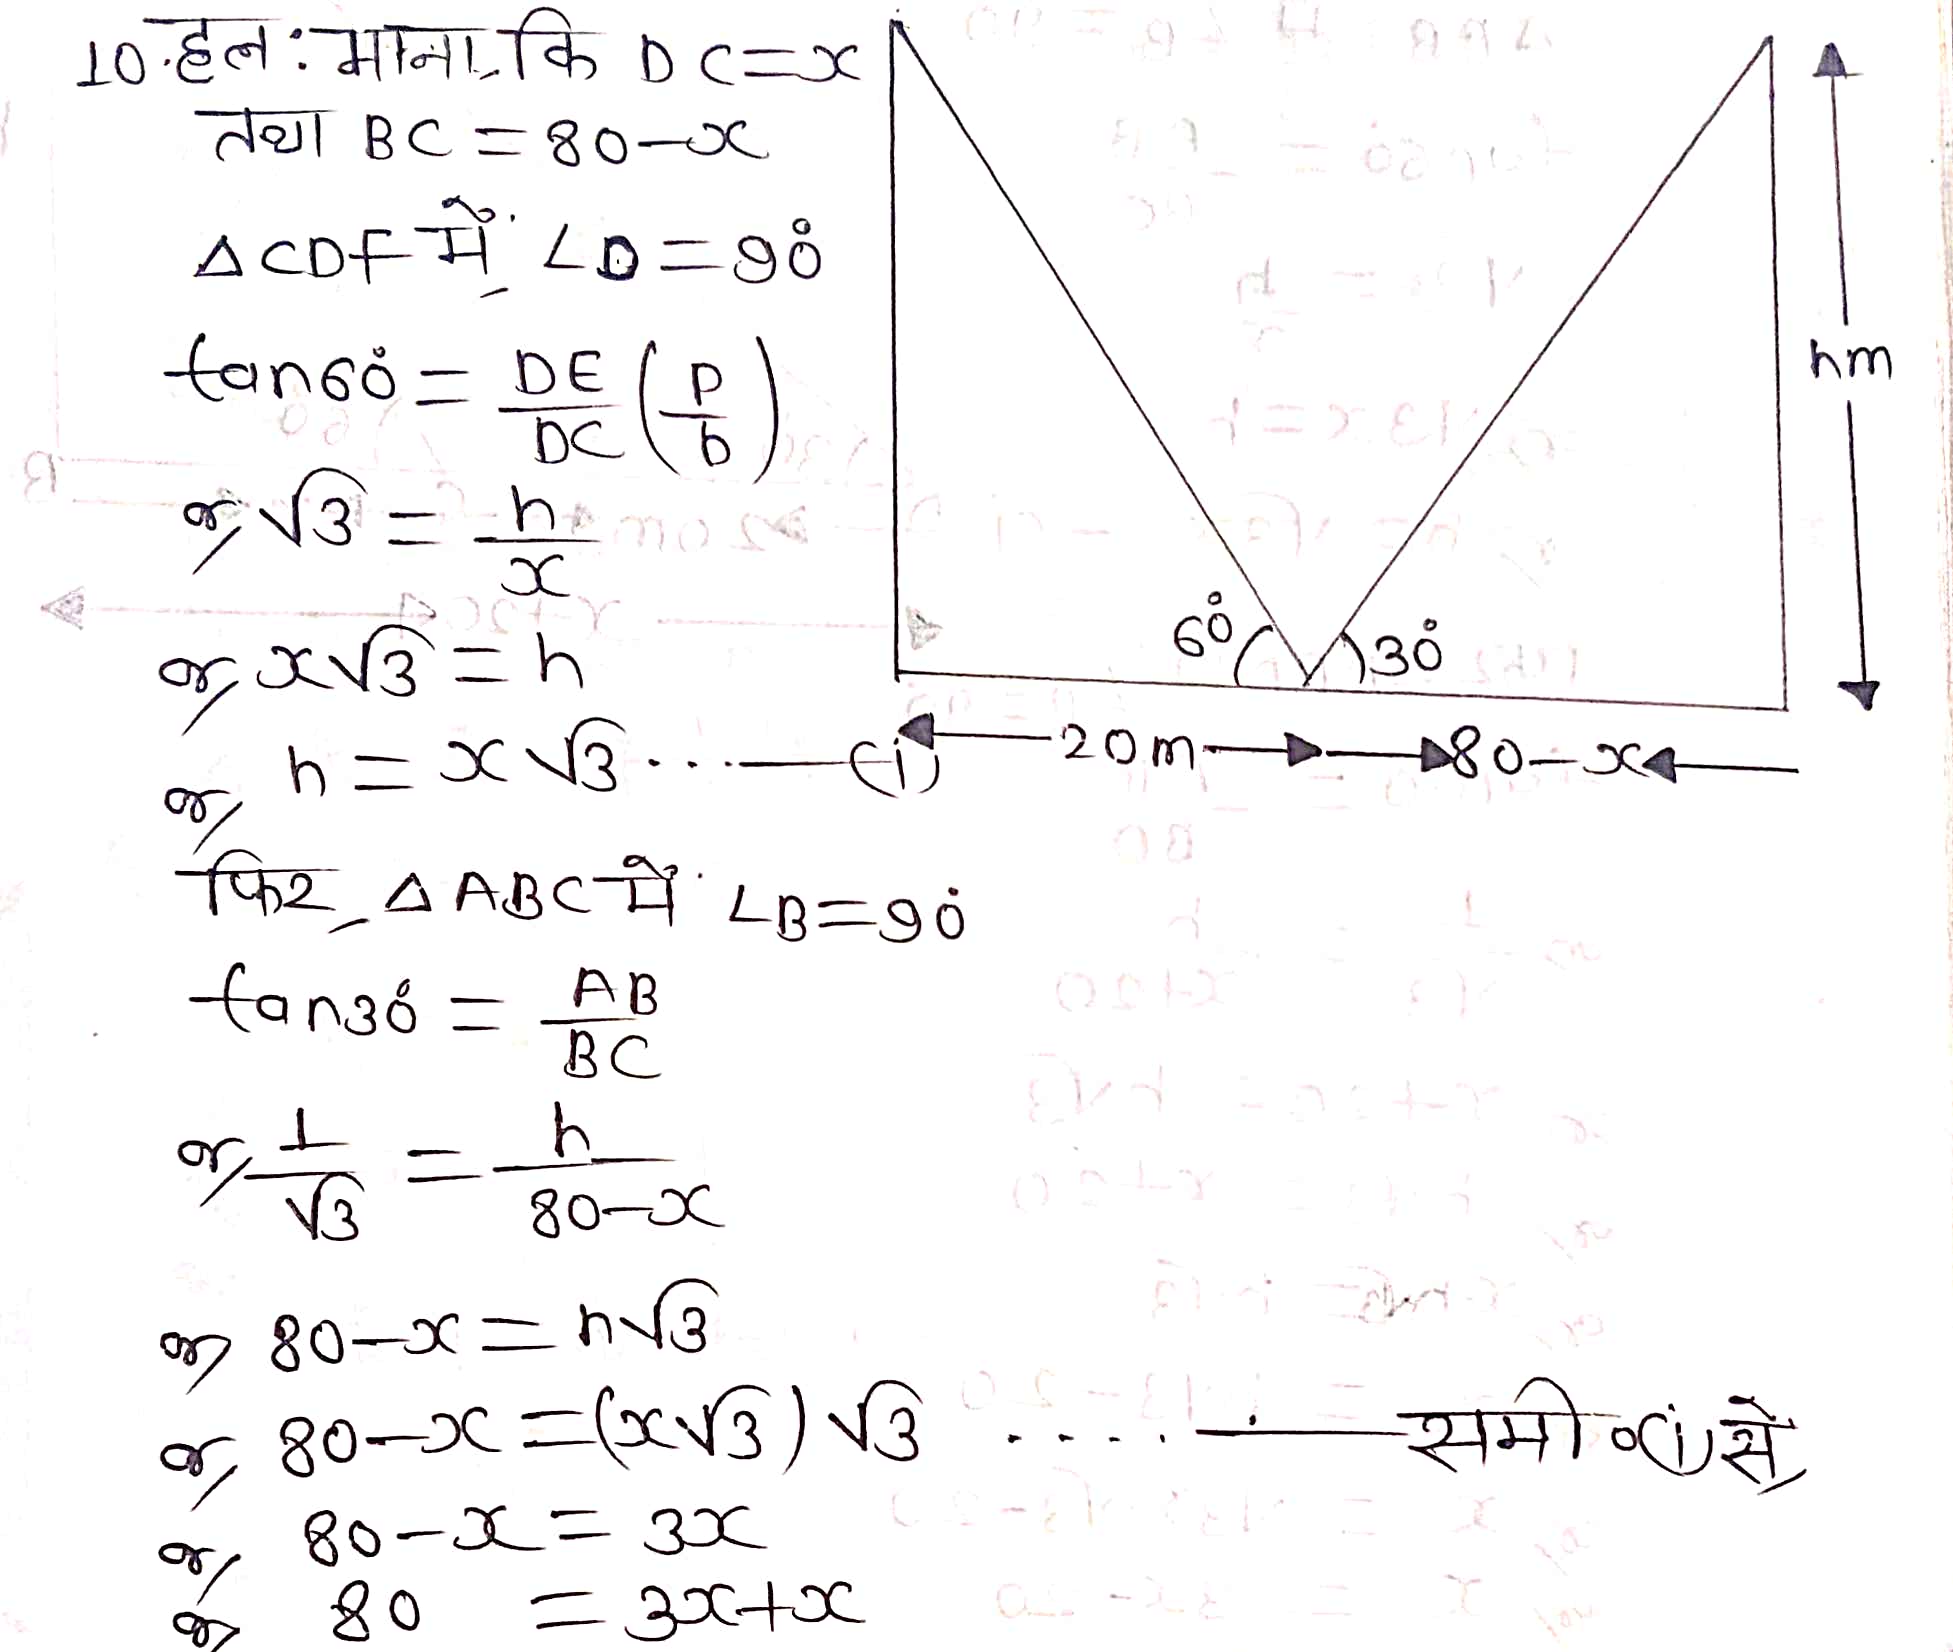 10. हल : माना, कि DC = x
तथा BC = 80 - x
△CDF में, ∠D = 90°
tan60° = DE/DC (P/b)
or, √3 = h/x
or, x√3 = h
or, h = x√3 ...—(i)
फिर, △ABC में ∠B = 90°
tan30° = AB/BC
or, 1/√3 = h/80-x
or, 80 - x = h√3
or, 80 - x = (x√3)√3 ....—समी०(i) से,
or, 80 - x = 3x
or, 80 = 3x + x
hm
60° 30°
20m 80-x